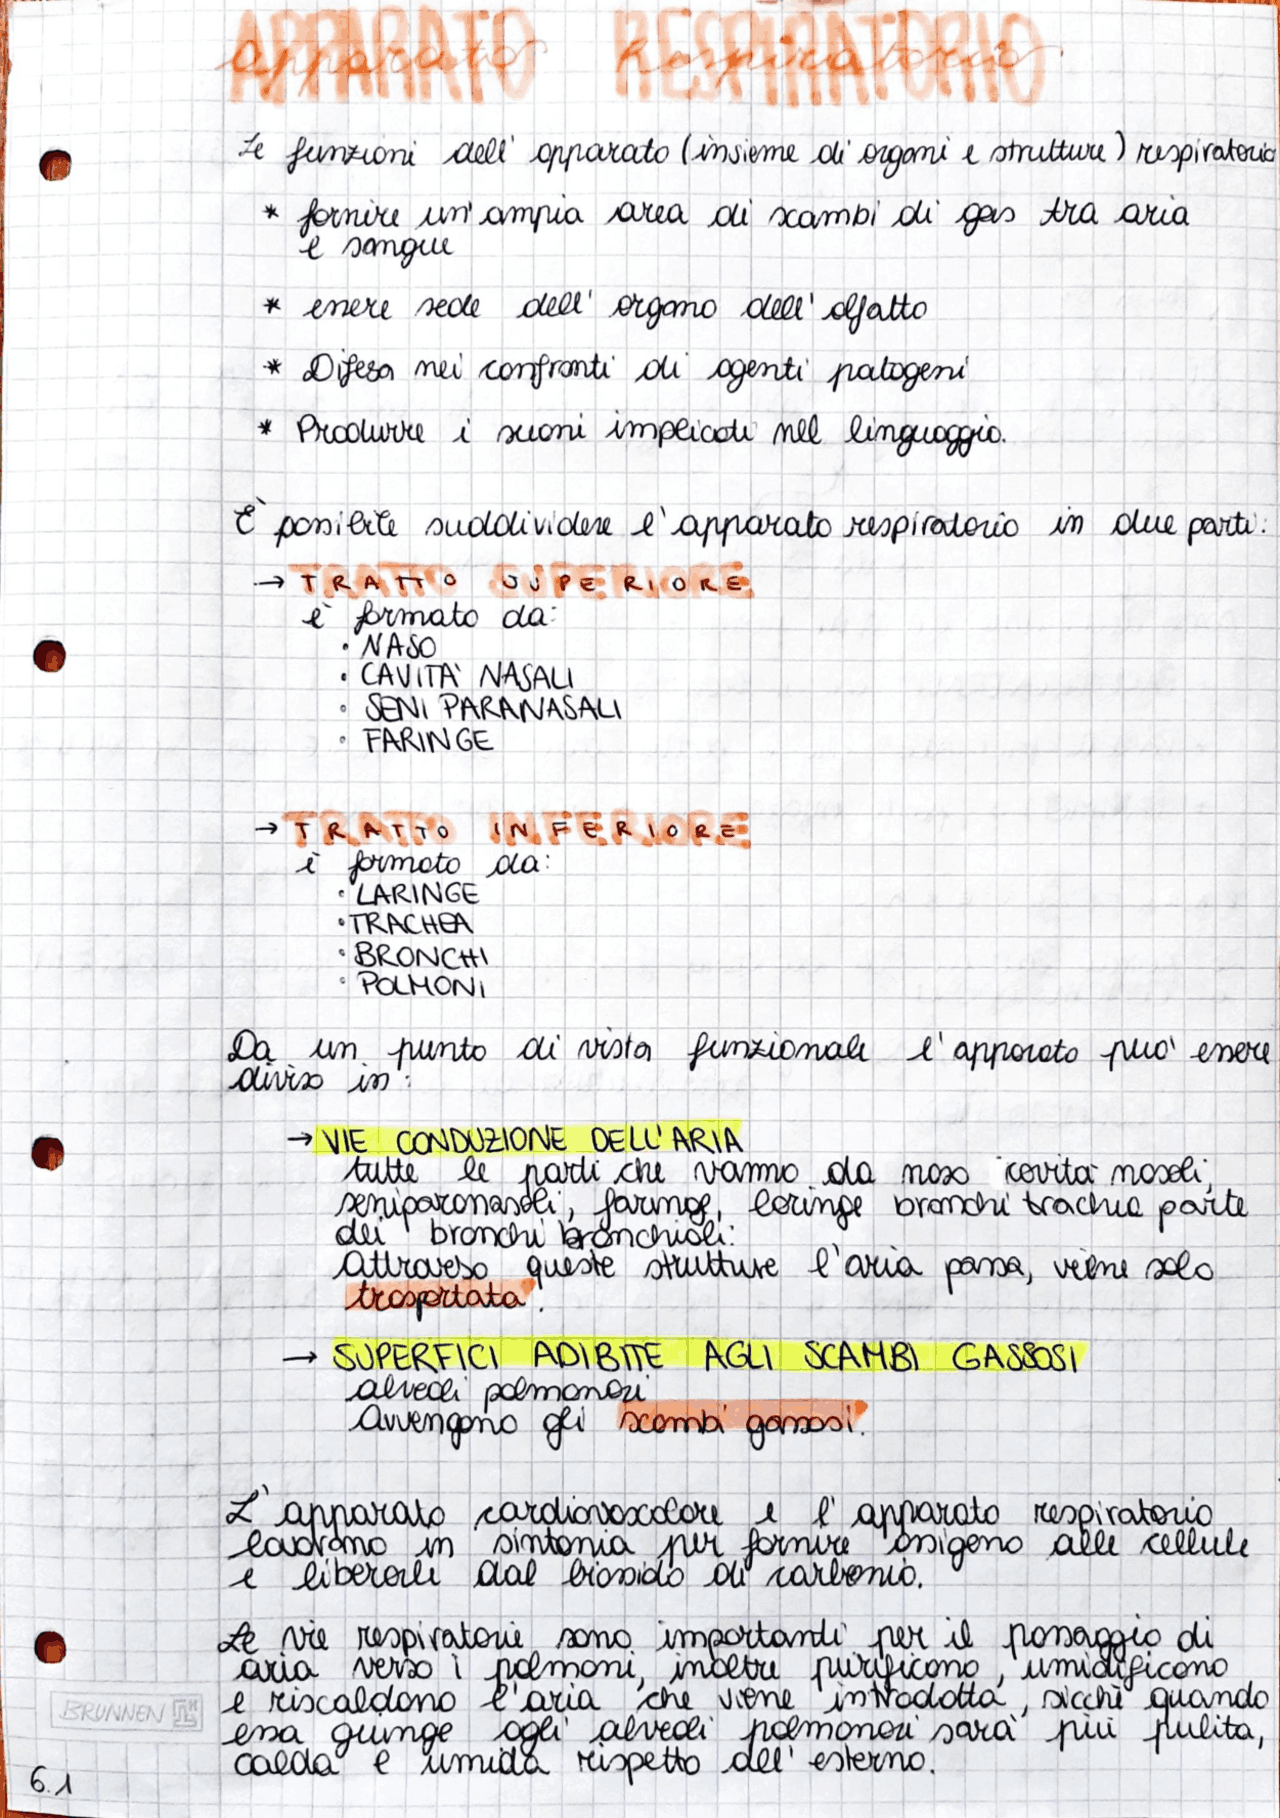 APPARATO RESPIRATORIO
Apparato Respiratorio
Le funzioni dell' apparato (insieme di organi e strutture) respiratorio
* fornire un'ampia area di scambi di gas tra aria
e sangue
* essere sede dell' organo dell' olfatto
* Difesa nei confronti di agenti patogeni
* Produrre i suoni implicati nel linguaggio.
E' possibile suddividere l'apparato respiratorio in due parti:
→ TRATTO SUPERIORE
è formato da:
• NASO
• CAVITA' NASALI
• SENI PARANASALI
• FARINGE
→ TRATTO INFERIORE
è formato da:
• LARINGE
• TRACHEA
• BRONCHI
• POLMONI
Da un punto di vista funzionale l'apparato puo' essere
diviso in:
→ VIE CONDUZIONE DELL'ARIA
tutte le parti che vanno da naso cavità nasali,
seniparanasali, faringe, laringe bronchi trachea parte
dei bronchi bronchioli.
Attraveso queste strutture l'aria passa, viene solo
trasportata.
→ SUPERFICI ADIBITE AGLI SCAMBI GASSOSI
alveoli polmonari
Avvengono gli scambi gassosi.
L'apparato cardiovascolare e l' apparato respiratorio
lavorano in sintonia per fornire ossigeno alle cellule
e liberarli dal biossido di carbonio.
Le vie respiratorie sono importanti per il passaggio di
aria verso i polmoni, inoltre purificano, umidificano
e riscaldano l'aria che viene introdotta, sicchè quando
essa giunge agli alveoli polmonari sarà più pulita,
calda e umida rispetto all' esterno.
BRUNNEN
6.1